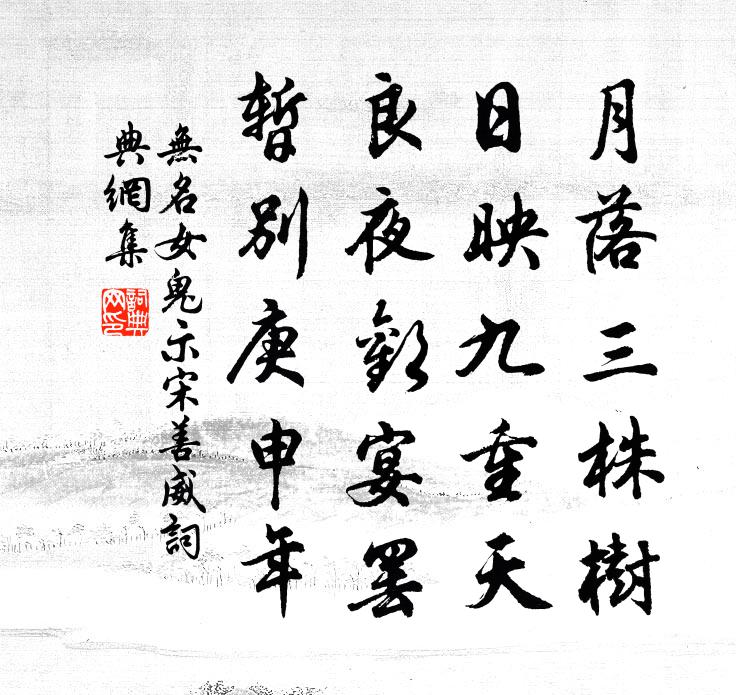 月落三株樹
日映九重天
良夜歡宴罷
暫別庚申年
無名女鬼示宋善威詞
典網集
詞典網印